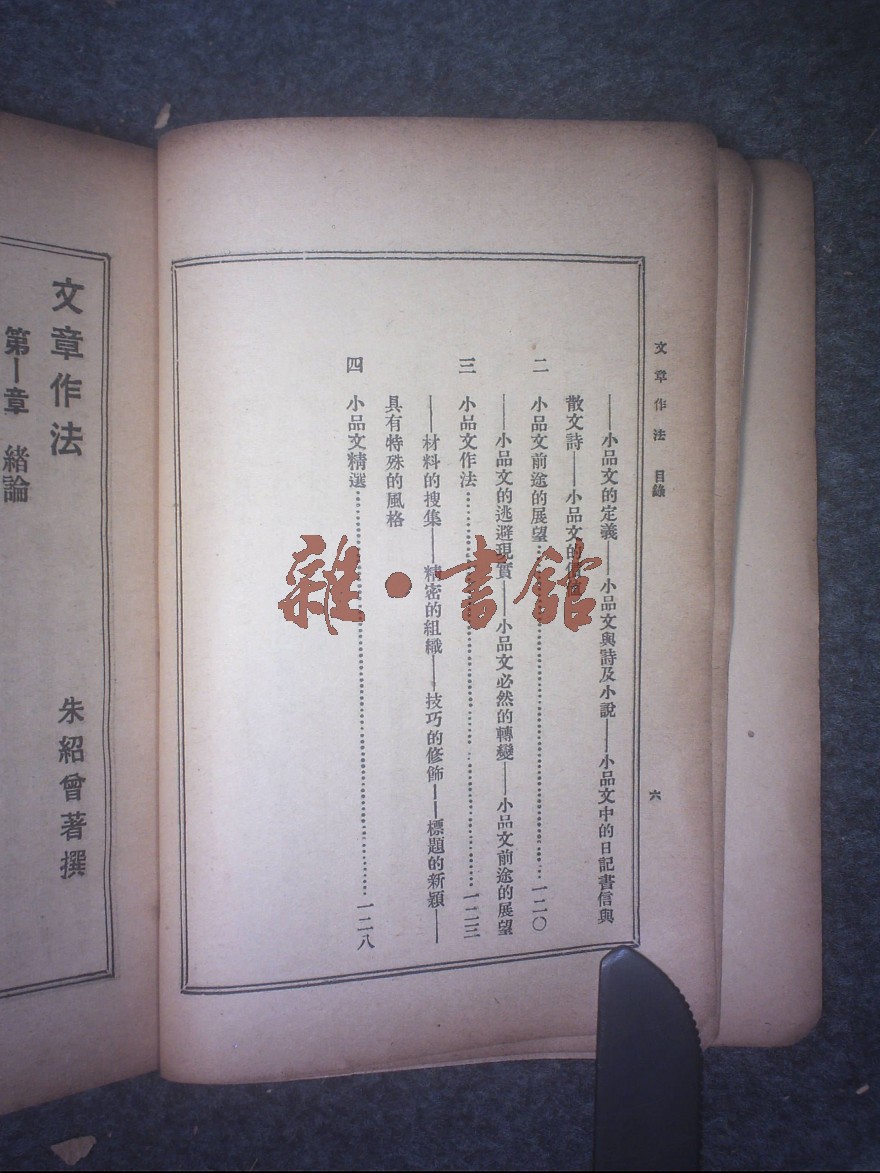 文章作法 目錄
六
——小品文的定義——小品文與詩及小說——小品文中的日記書信與
散文詩——小品文的價値
二 小品文前途的展望……一二〇
——小品文的逃避現實——小品文必然的轉變——小品文前途的展望
三 小品文作法……一二三
——材料的搜集——精密的組織——技巧的修飾——標題的新穎——
具有特殊的風格
四 小品文精選……一二八
文章作法
朱紹曾著撰
第一章 緒論
雜·書館